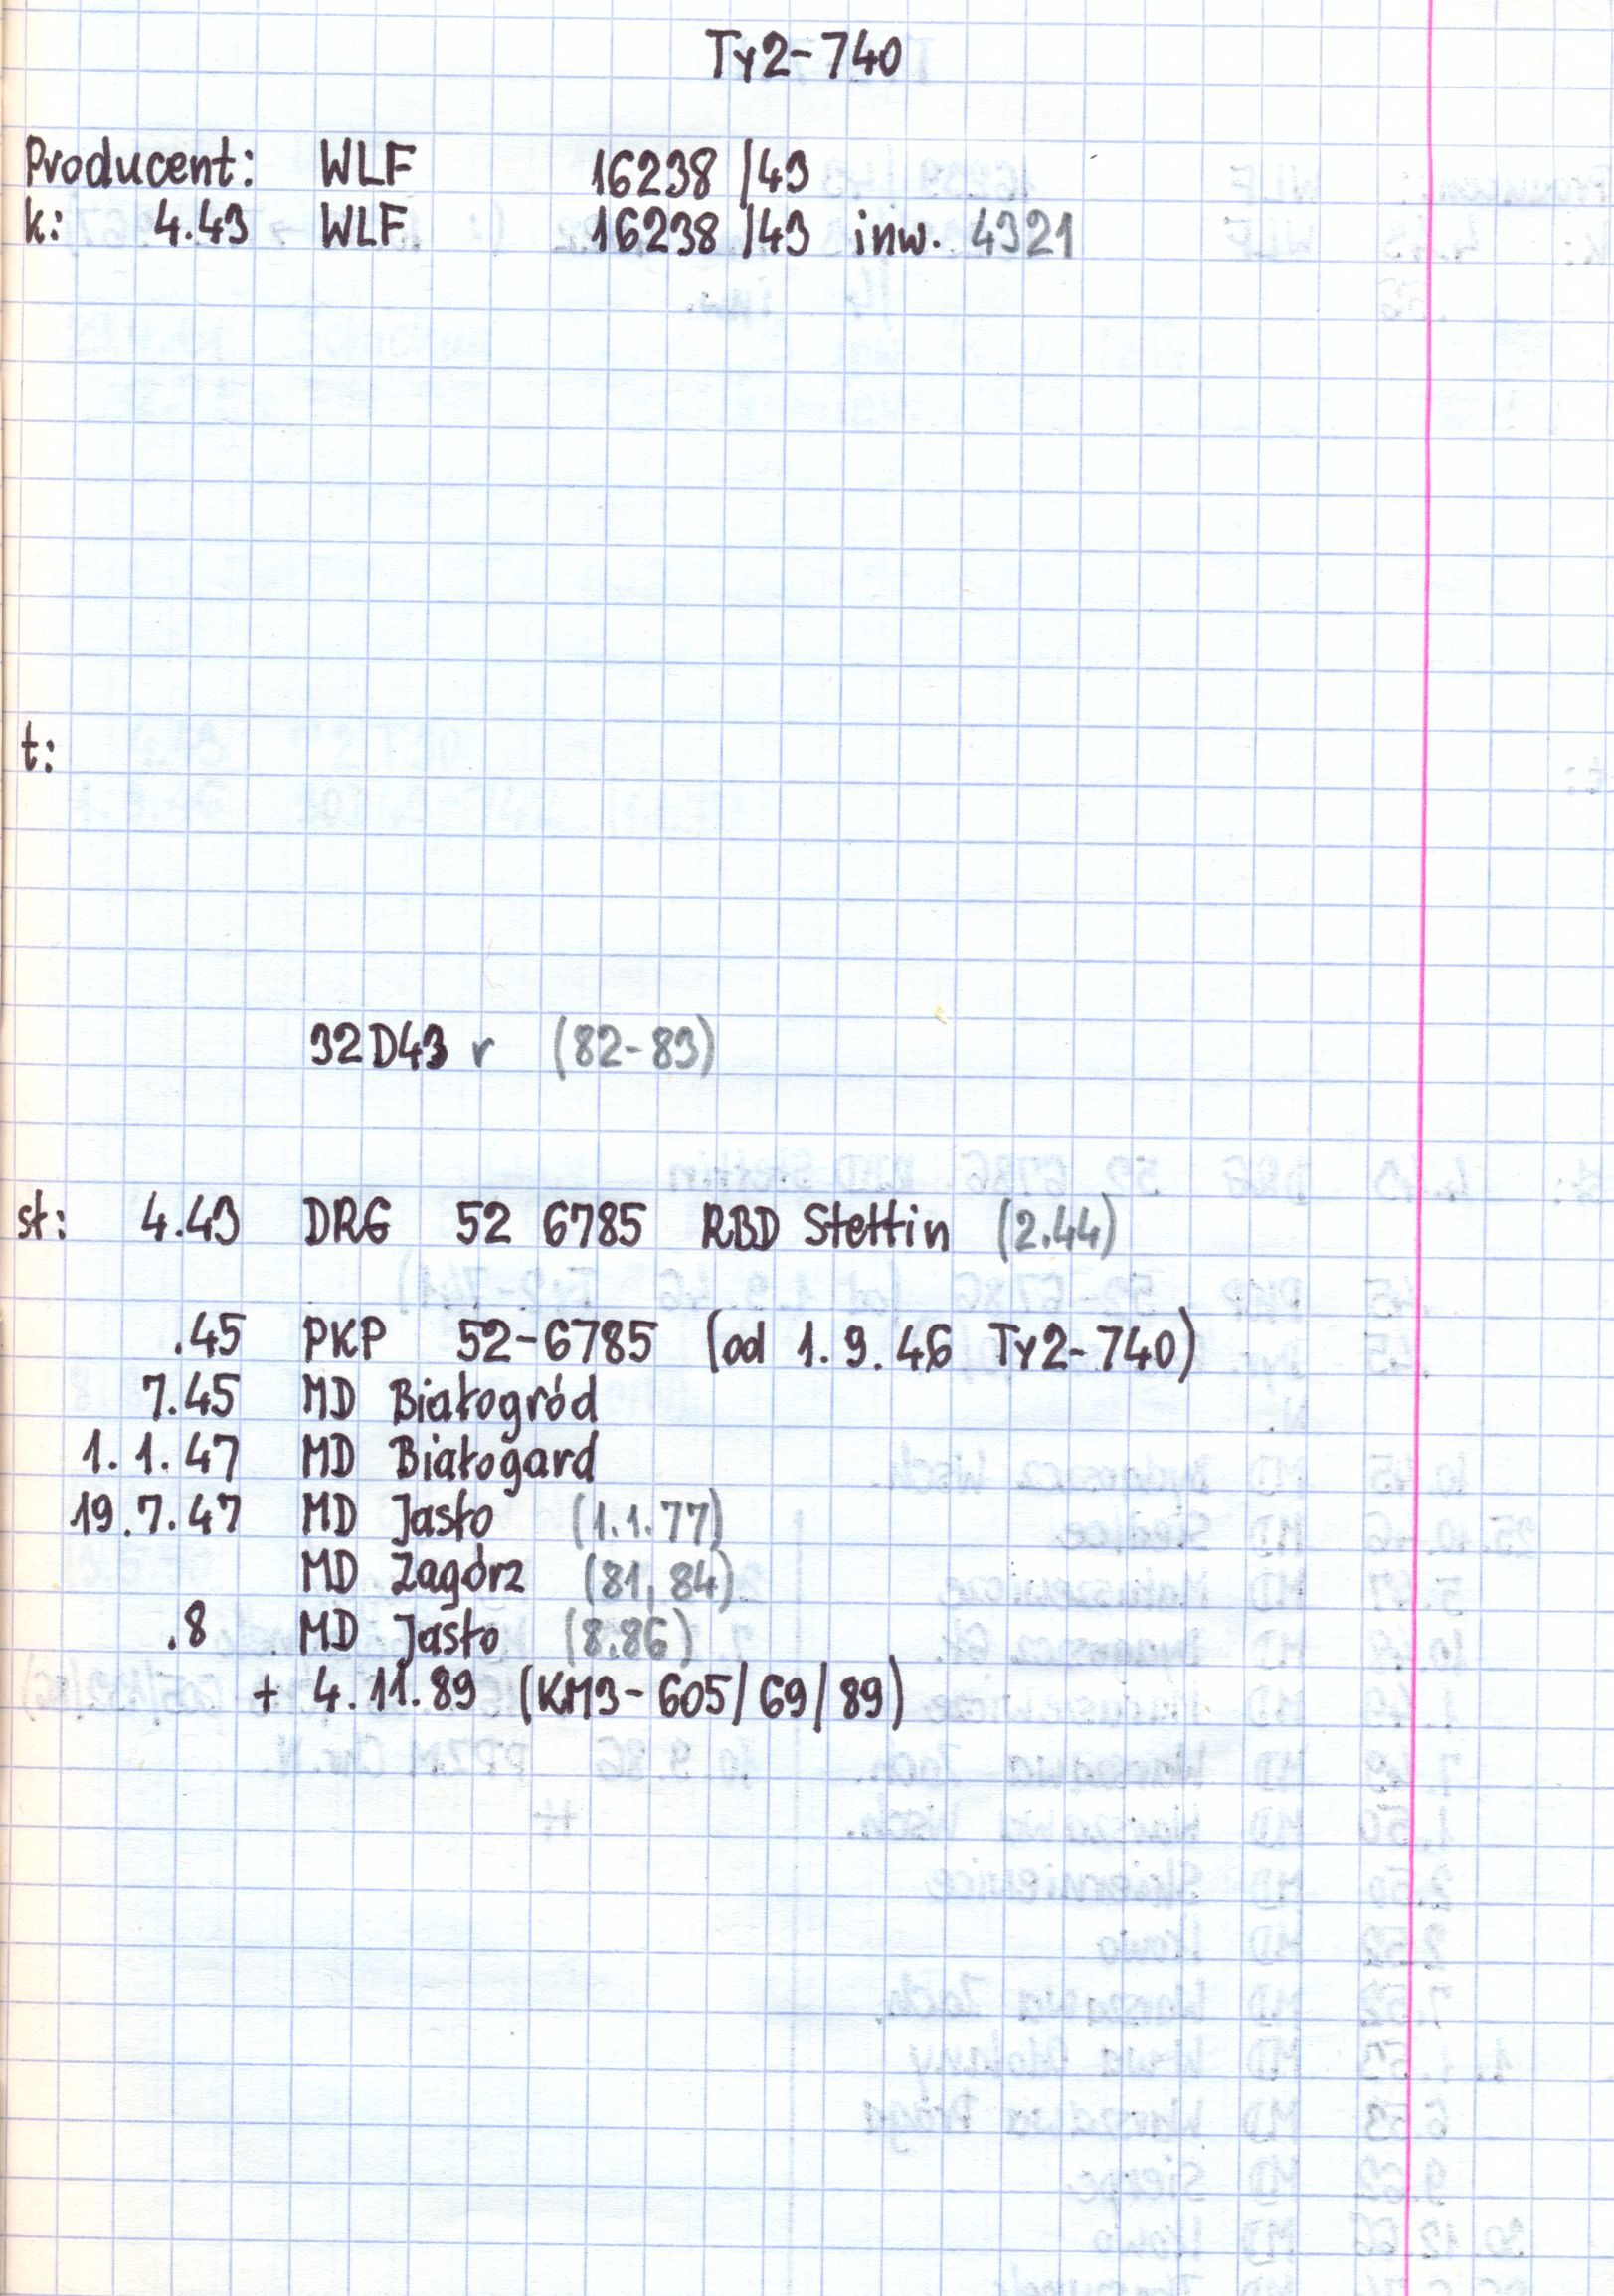 Ty2-740
Producent: WLF 16238/43
k: 4.43 WLF 16238/43 inw. 4321
t:
32D43 r (82-83)
st: 4.43 DRG 52 6785 RBD Stettin (2.44)
.45 PKP 52-6785 (od 1.9.46 Ty2-740)
7.45 MD Białogród
1.1.47 MD Białogard
19.7.47 MD Jasło (1.1.77)
MD Zagórz (81, 84)
.8 MD Jasło (8.86)
+ 4.11.89 (KM3-605/69/89)